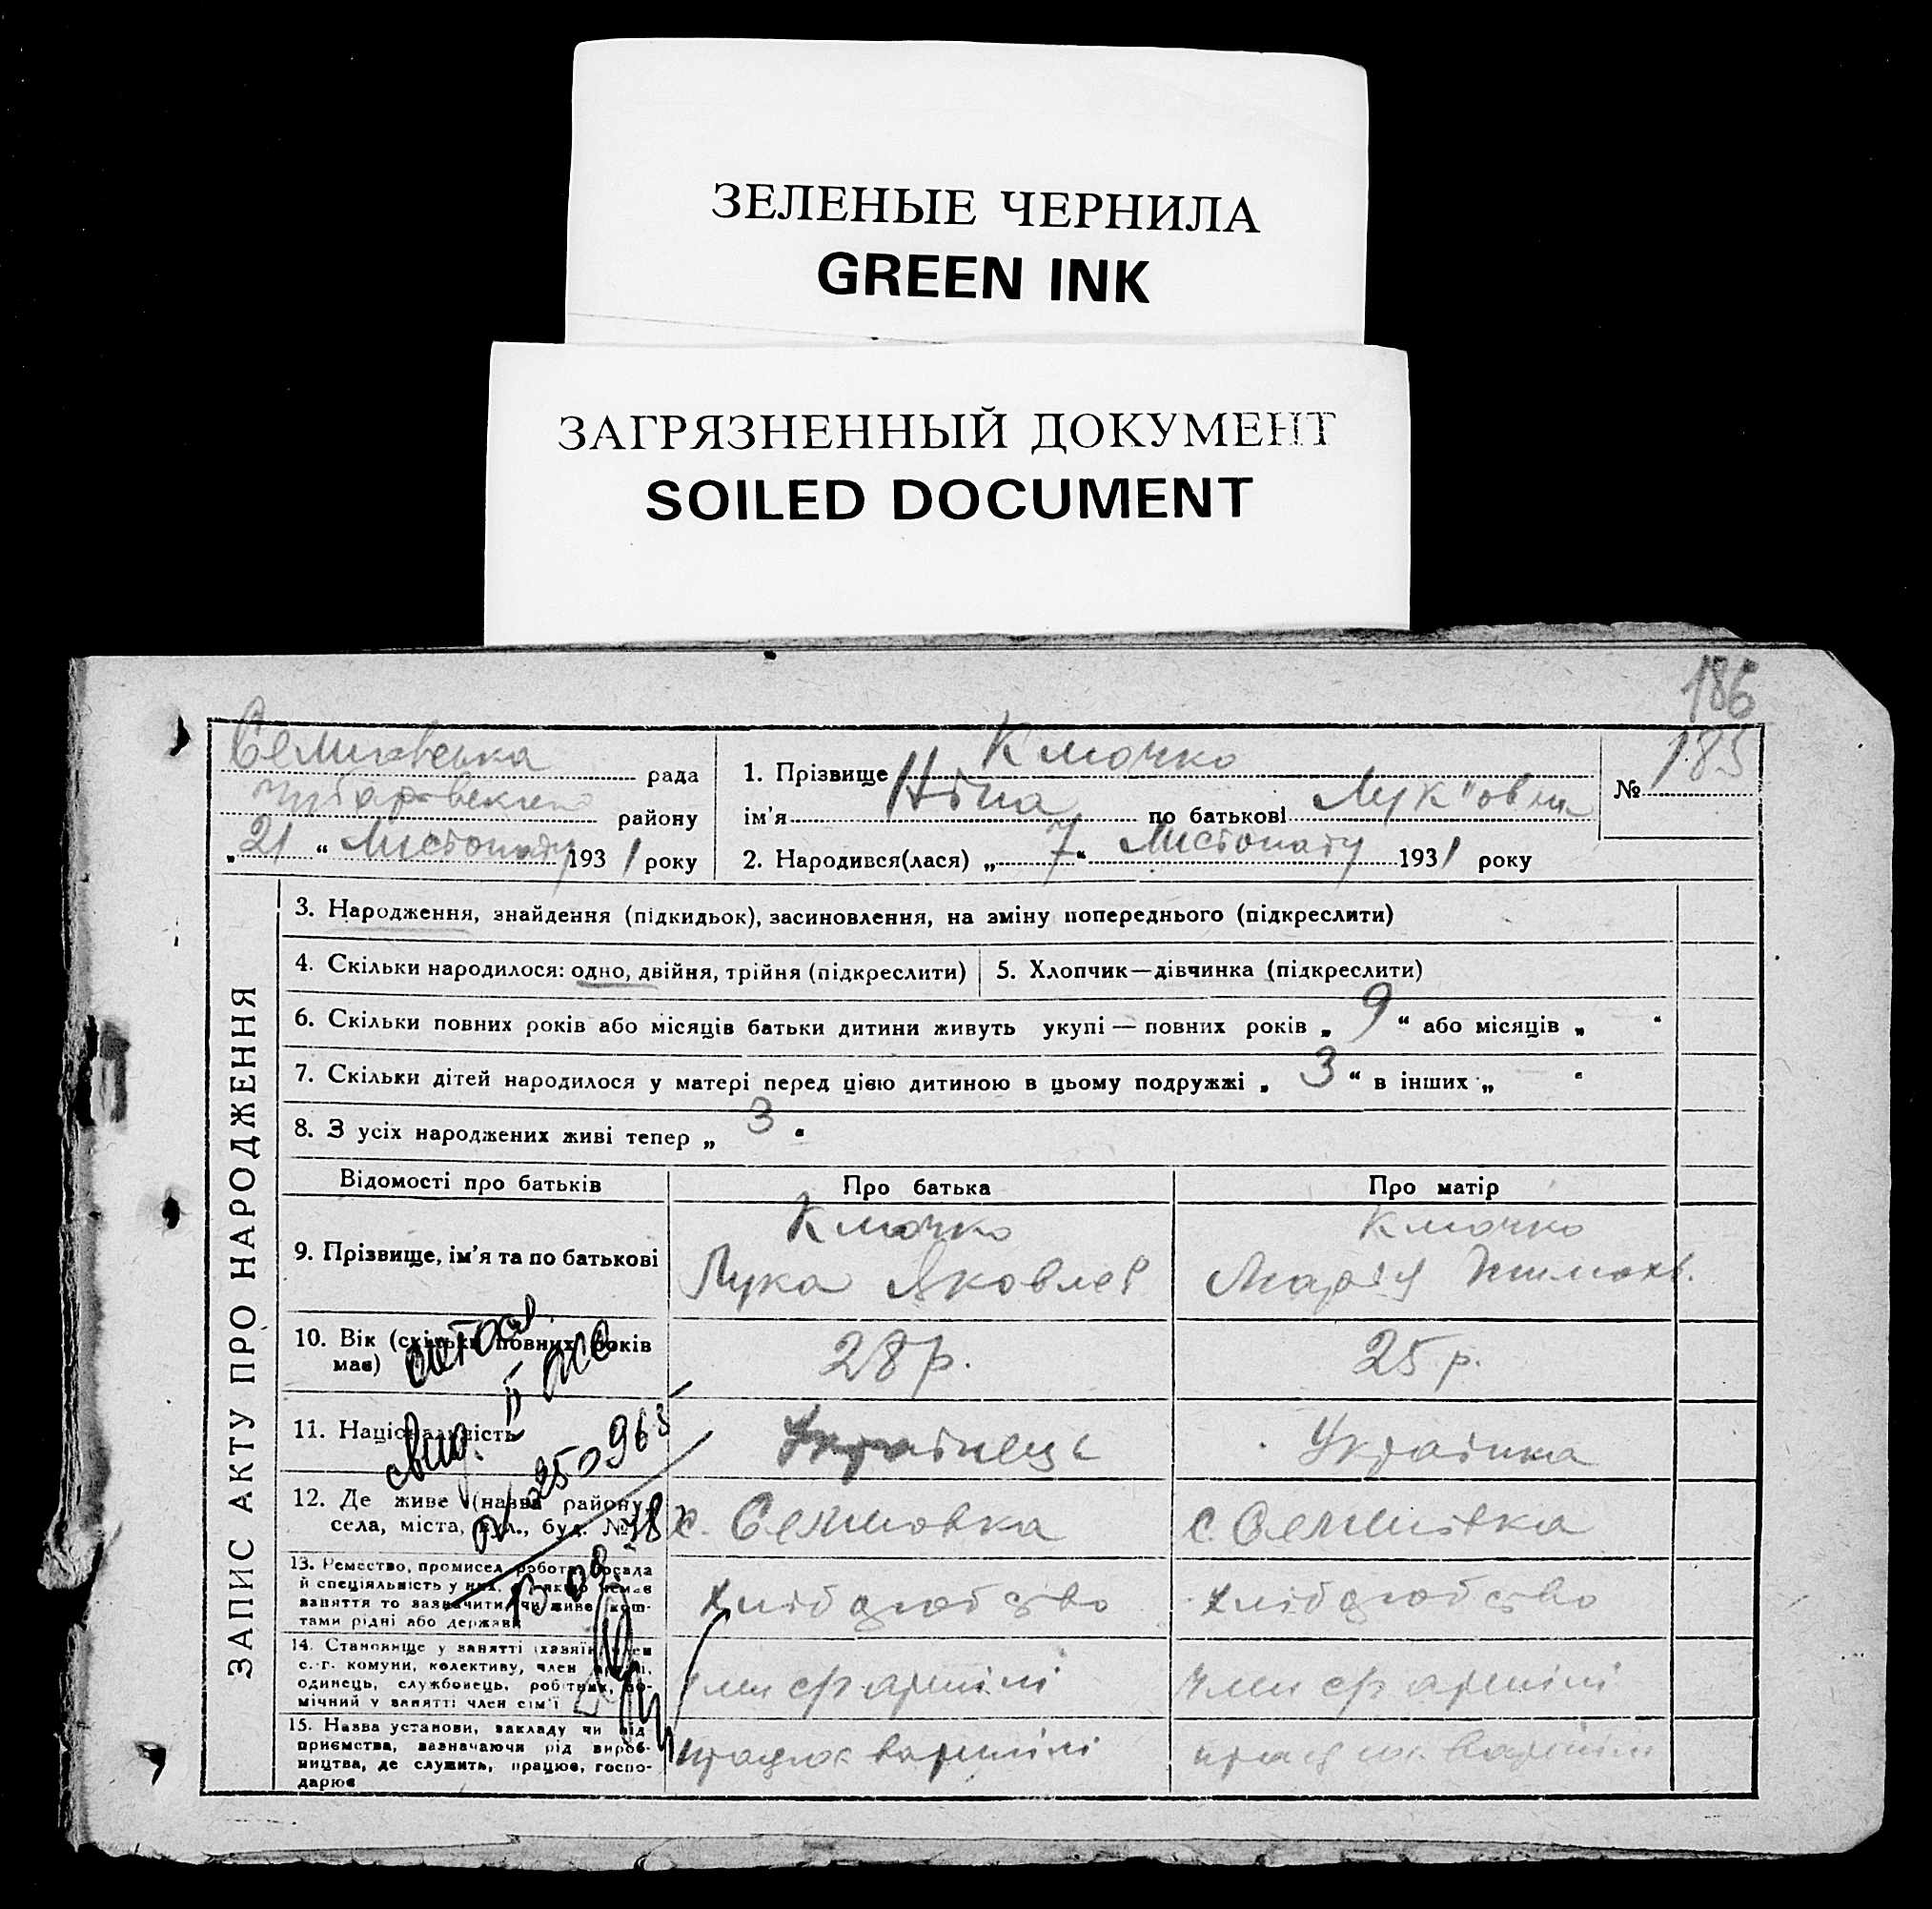 ЗЕЛЕНЫЕ ЧЕРНИЛА
GREEN INK
ЗАГРЯЗНЕННЫЙ ДОКУМЕНТ
SOILED DOCUMENT
186
рада
району
„21“ Листопаду 1931 року
1. Прізвище Клочко
ім'я Ніна по батькові Лук"овна
№ 185
2. Народився(лася) „7“ Листопаду 1931 року
ЗАПИС АКТУ ПРО НАРОДЖЕННЯ
3. Народження, знайдення (підкидьок), засиновлення, на зміну попереднього (підкреслити)
4. Скільки народилося: одно, двійня, трійня (підкреслити)
5. Хлопчик—дівчинка (підкреслити)
6. Скільки повних років або місяців батьки дитини живуть укупі — повних років „9“ або місяців „ “
7. Скільки дітей народилося у матері перед цією дитиною в цьому подружжі „3“ в інших „ “
8. З усіх народжених живі тепер „3“
Відомості про батьків
Про батька
Про матір
9. Прізвище, ім'я та по батькові
Клочко
Лука Яковлев
Клочко
Марія
10. Вік (скільки повних років
має)
28 р.
25 р.
11. Національність
Українець
Українка
12. Де живе (назва району,
села, міста, вул., буд. №)
с.
с.
13. Ремество, промисел, робота, посада
й спеціяльність у них, а якщо немає
заняття то зазначити, чи живе кош-
тами рідні або держави
хлібороб ство
хлібороб ство
14. Становище у занятті (хазяїн, член
с.-г. комуни, колективу, член артілі,
одинець, службовець, робітник, по-
мічний у занятті член сім'ї
член с/г артілі
член с/г артілі
15. Назва установи, закладу чи під
приємства, зазначаючи рід вироб-
ництва, де служить, працює, госпо-
дарює
працює в артілі
працює в артілі
свид.